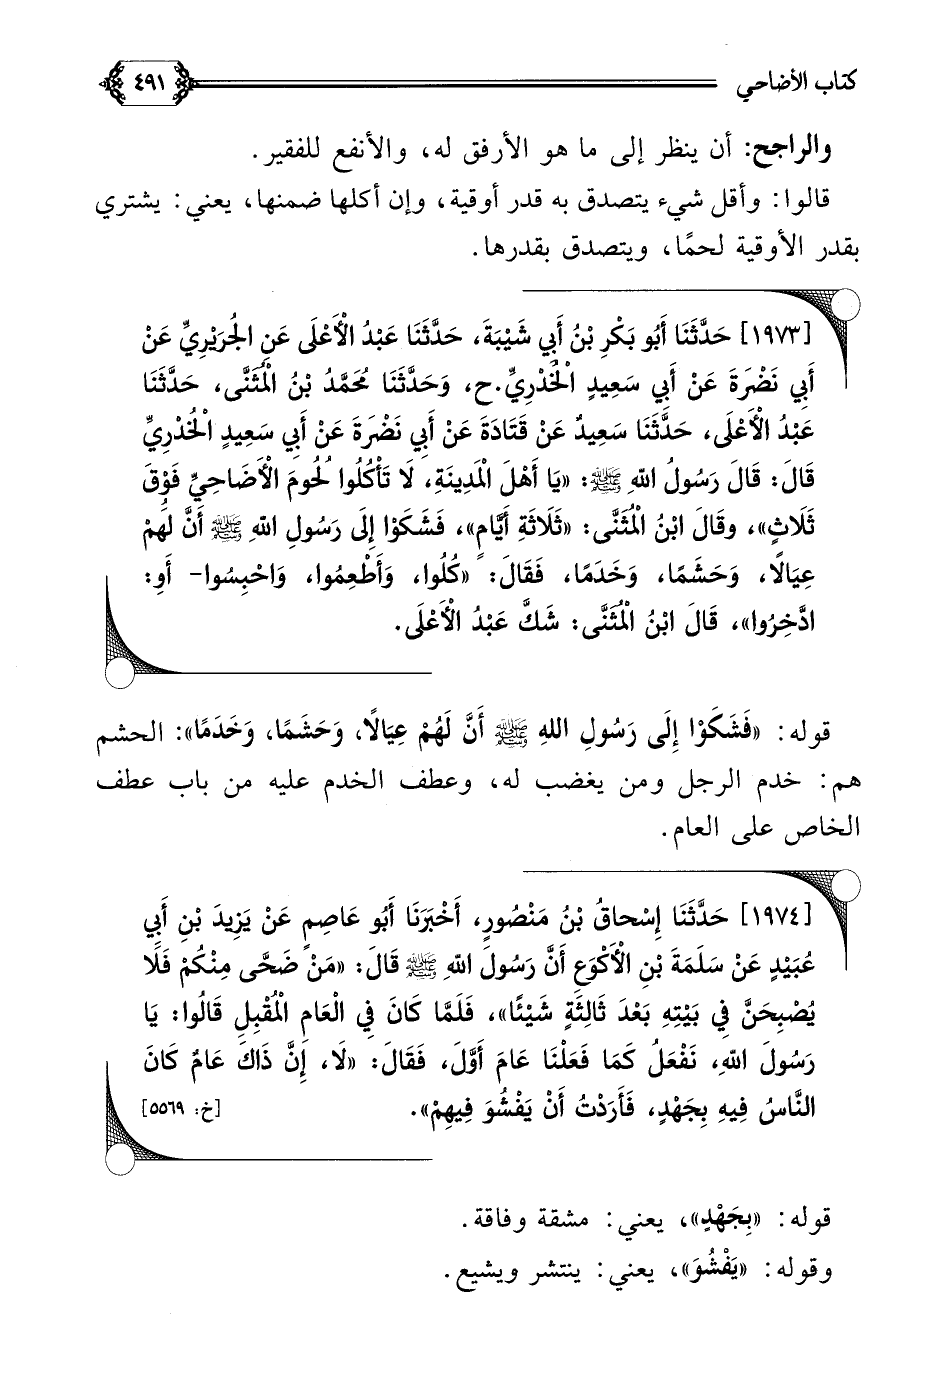 كتاب الأضاحي ٤٩١
والراجح: أن ينظر إلى ما هو الأرفق له، والأنفع للفقير.
قالوا: وأقل شيء يتصدق به قدر أوقية، وإن أكلها ضمنها، يعني: يشتري
بقدر الأوقية لحمًا، ويتصدق بقدرها.
[١٩٧٣] حَدَّثَنَا أَبُو بَكْرِ بْنُ أَبِي شَيْبَةَ، حَدَّثَنَا عَبْدُ الْأَعْلَى عَنِ الجُرَيْرِيِّ عَنْ
أَبِي نَضْرَةَ عَنْ أَبِي سَعِيدٍ الْخُدْرِيِّ.ح، وَحَدَّثَنَا مُحَمَّدُ بْنُ الْمُثَنَّى، حَدَّثَنَا
عَبْدُ الْأَعْلَى، حَدَّثَنَا سَعِيدٌ عَنْ قَتَادَةَ عَنْ أَبِي نَضْرَةَ عَنْ أَبِي سَعِيدٍ الْخُدْرِيِّ
قَالَ: قَالَ رَسُولُ اللهِ ﷺ: «يَا أَهْلَ الْمَدِينَةِ، لَا تَأْكُلُوا لُحُومَ الْأَضَاحِيِّ فَوْقَ
ثَلَاثٍ»، وقَالَ ابْنُ الْمُثَنَّى: «ثَلَاثَةِ أَيَّامٍ»، فَشَكَوْا إِلَى رَسُولِ اللهِ ﷺ أَنَّ لَهُمْ
عِيَالًا، وَحَشَمًا، وَخَدَمًا، فَقَالَ: «كُلُوا، وَأَطْعِمُوا، وَاحْبِسُوا- أَو:
ادَّخِرُوا»، قَالَ ابْنُ الْمُثَنَّى: شَكَّ عَبْدُ الْأَعْلَى.
قوله: «فَشَكَوْا إِلَى رَسُولِ اللهِ ﷺ أَنَّ لَهُمْ عِيَالًا، وَحَشَمًا، وَخَدَمًا»: الحشم
هم: خدم الرجل ومن يغضب له، وعطف الخدم عليه من باب عطف
الخاص على العام.
[١٩٧٤] حَدَّثَنَا إِسْحاقُ بْنُ مَنْصُورٍ، أَخْبَرَنَا أَبُو عَاصِمٍ عَنْ يَزِيدَ بْنِ أَبِي
عُبَيْدٍ عَنْ سَلَمَةَ بْنِ الْأَكْوَعِ أَنَّ رَسُولَ اللهِ ﷺ قَالَ: «مَنْ ضَحَّى مِنْكُمْ فَلَا
يُصْبِحَنَّ فِي بَيْتِهِ بَعْدَ ثَالِثَةٍ شَيْئًا»، فَلَمَّا كَانَ فِي الْعَامِ الْمُقْبِلِ قَالُوا: يَا
رَسُولَ اللهِ، نَفْعَلُ كَمَا فَعَلْنَا عَامَ أَوَّلَ، فَقَالَ: «لَا، إِنَّ ذَاكَ عَامٌ كَانَ
النَّاسُ فِيهِ بِجَهْدٍ، فَأَرَدْتُ أَنْ يَفْشُوَ فِيهِمْ». [خ: ٥٥٦٩]
قوله: «بِجَهْدٍ»، يعني: مشقة وفاقة.
وقوله: «يَفْشُوَ»، يعني: ينتشر ويشيع.